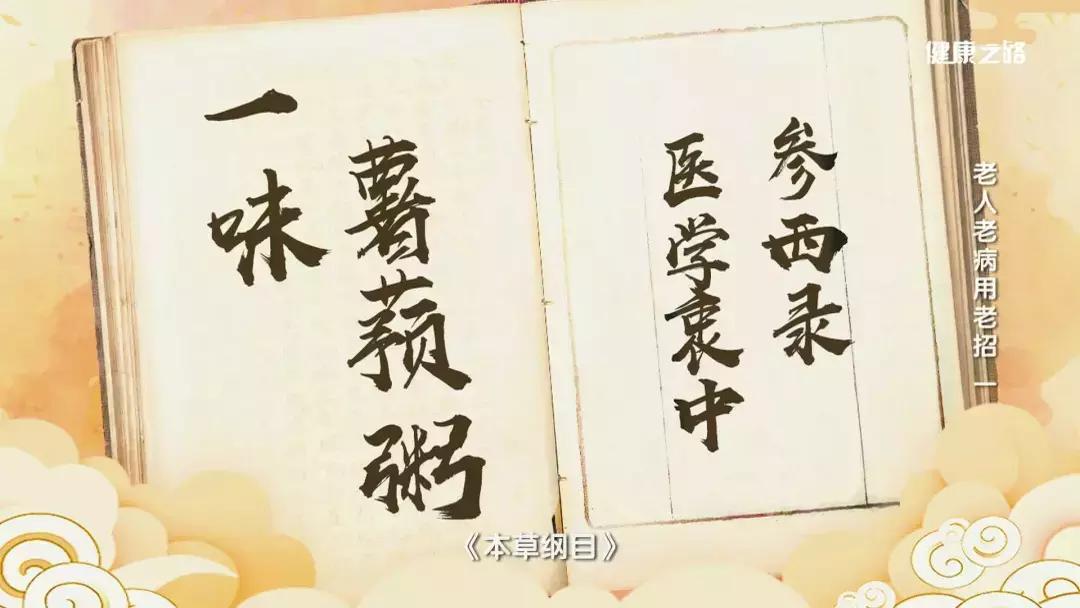 健康之路
医学衷中
参西录
一味
薯蓣粥
老人老病用老招 一
《本草纲目》